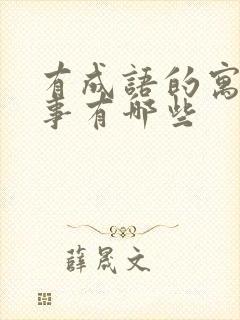 有成語的寓
事有哪些
薛晟文